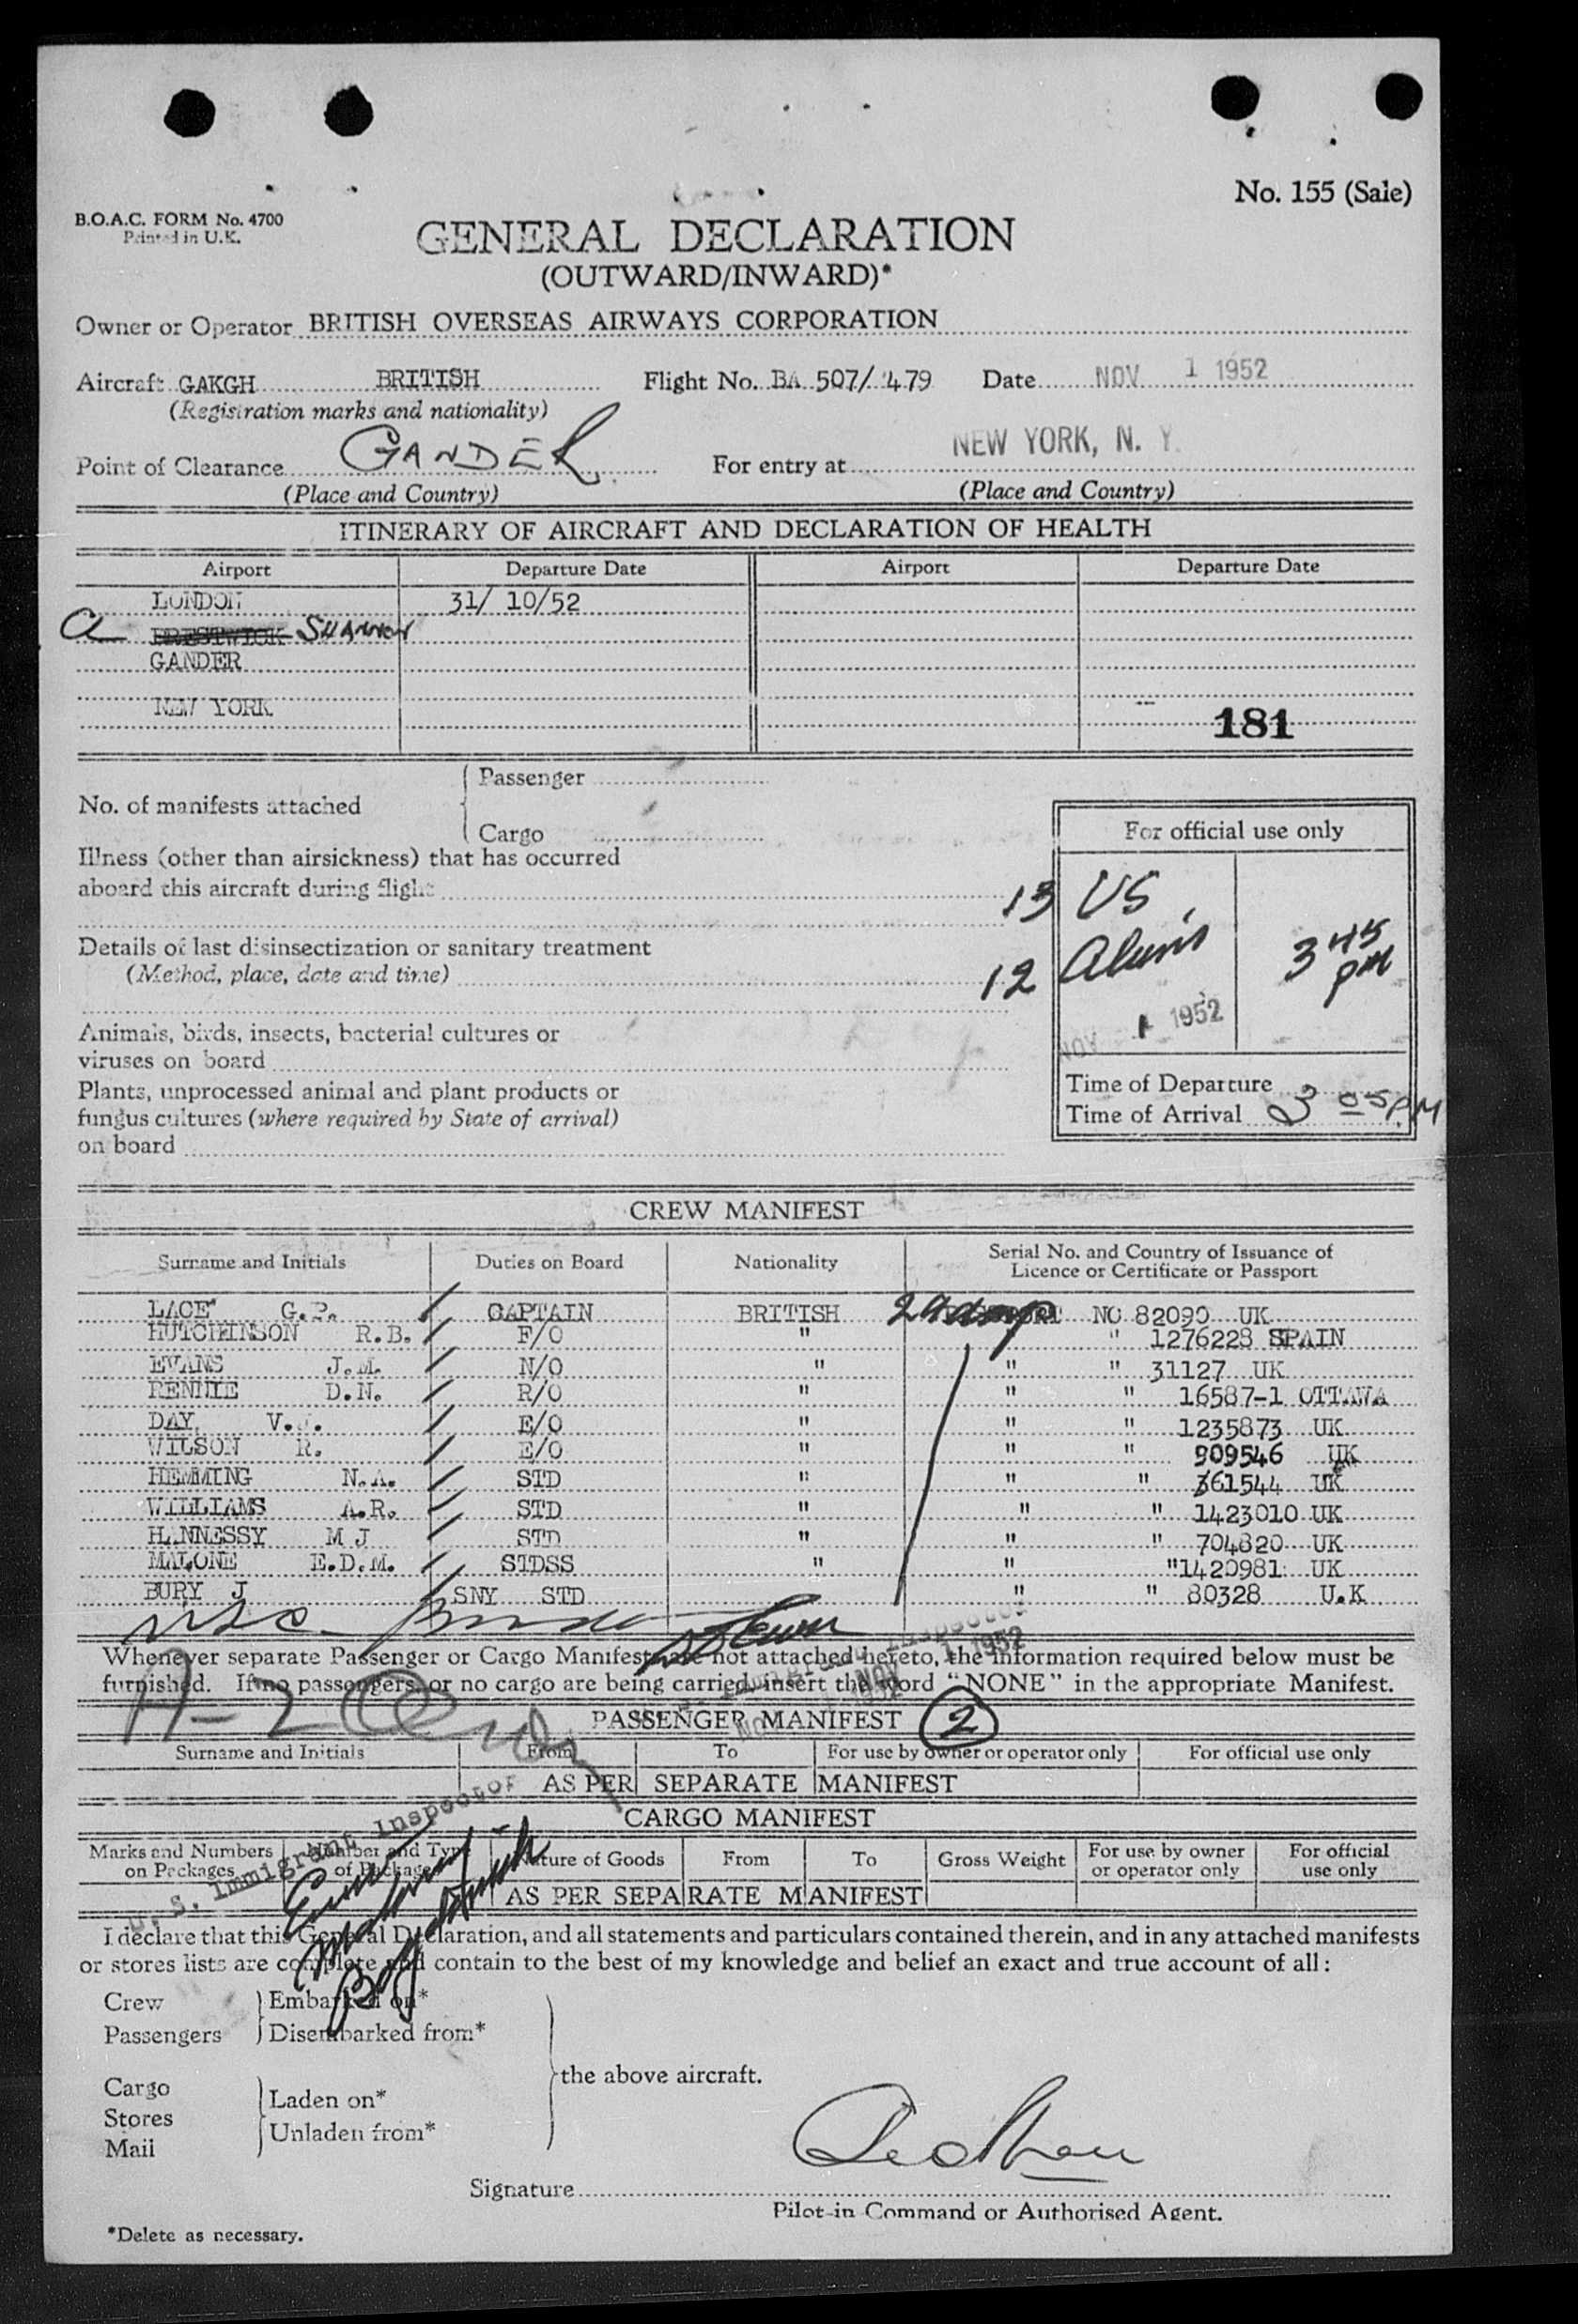 No. 155 (Sale)
B.O.A.C. FORM No. 4700
Printed in U.K.
GENERAL DECLARATION
(OUTWARD/INWARD)*
Owner or Operator BRITISH OVERSEAS AIRWAYS CORPORATION
Aircraft GAKGH BRITISH Flight No. BA 507/ 479 Date NOV 1 1952
(Registration marks and nationality)
Point of Clearance GANDER For entry at NEW YORK, N. Y.
(Place and Country) (Place and Country)
ITINERARY OF AIRCRAFT AND DECLARATION OF HEALTH
Airport Departure Date Airport Departure Date
LONDON 31/ 10/52
a PRESTWICK SHANNON
GANDER
NEW YORK
181
No. of manifests attached
Passenger
Cargo
For official use only
Illness (other than airsickness) that has occurred
aboard this aircraft during flight
13 US
Details of last disinsectization or sanitary treatment
(Method, place, date and time)
12 Aliens
3 45 PM
NOV 1 1952
Animals, birds, insects, bacterial cultures or
viruses on board
Plants, unprocessed animal and plant products or
fungus cultures (where required by State of arrival)
on board
Time of Departure
Time of Arrival 3 05 PM
CREW MANIFEST
Surname and Initials Duties on Board Nationality Serial No. and Country of Issuance of
Licence or Certificate or Passport
LACE G.P. CAPTAIN BRITISH NO 82090 UK
HUTCHINSON R.B. F/O " " 1276228 SPAIN
EVANS J.M. N/O " " " 31127 UK
RENNIE D.N. R/O " " " 16587-1 OTTAWA
DAY V. E/O " " " 1235873 UK
WILSON R. E/O " " " 909546 UK
HEMMING N.A. STD " " " 361544 UK
WILLIAMS A.R. STD " " " 1423010 UK
HANNESSY M J STD " " " 704820 UK
MALONE E.D.M. STDSS " " "1420981 UK
BURY J SNY STD " " 80328 U.K
Whenever separate Passenger or Cargo Manifests are not attached hereto, the information required below must be
furnished. If no passengers, or no cargo are being carried, insert the word "NONE" in the appropriate Manifest.
NOV 1 1952
PASSENGER MANIFEST 2
Surname and Initials From To For use by owner or operator only For official use only
AS PER SEPARATE MANIFEST
U. S. Immigrant Inspector
CARGO MANIFEST
Marks and Numbers on Packages Number and Type of Packages Nature of Goods From To Gross Weight For use by owner or operator only For official use only
AS PER SEPARATE MANIFEST
I declare that this General Declaration, and all statements and particulars contained therein, and in any attached manifests
or stores lists are complete and contain to the best of my knowledge and belief an exact and true account of all:
Crew
Passengers
Embarked on*
Disembarked from*
Cargo
Stores
Mail
Laden on*
Unladen from*
the above aircraft.
Signature
Pilot-in Command or Authorised Agent.
*Delete as necessary.